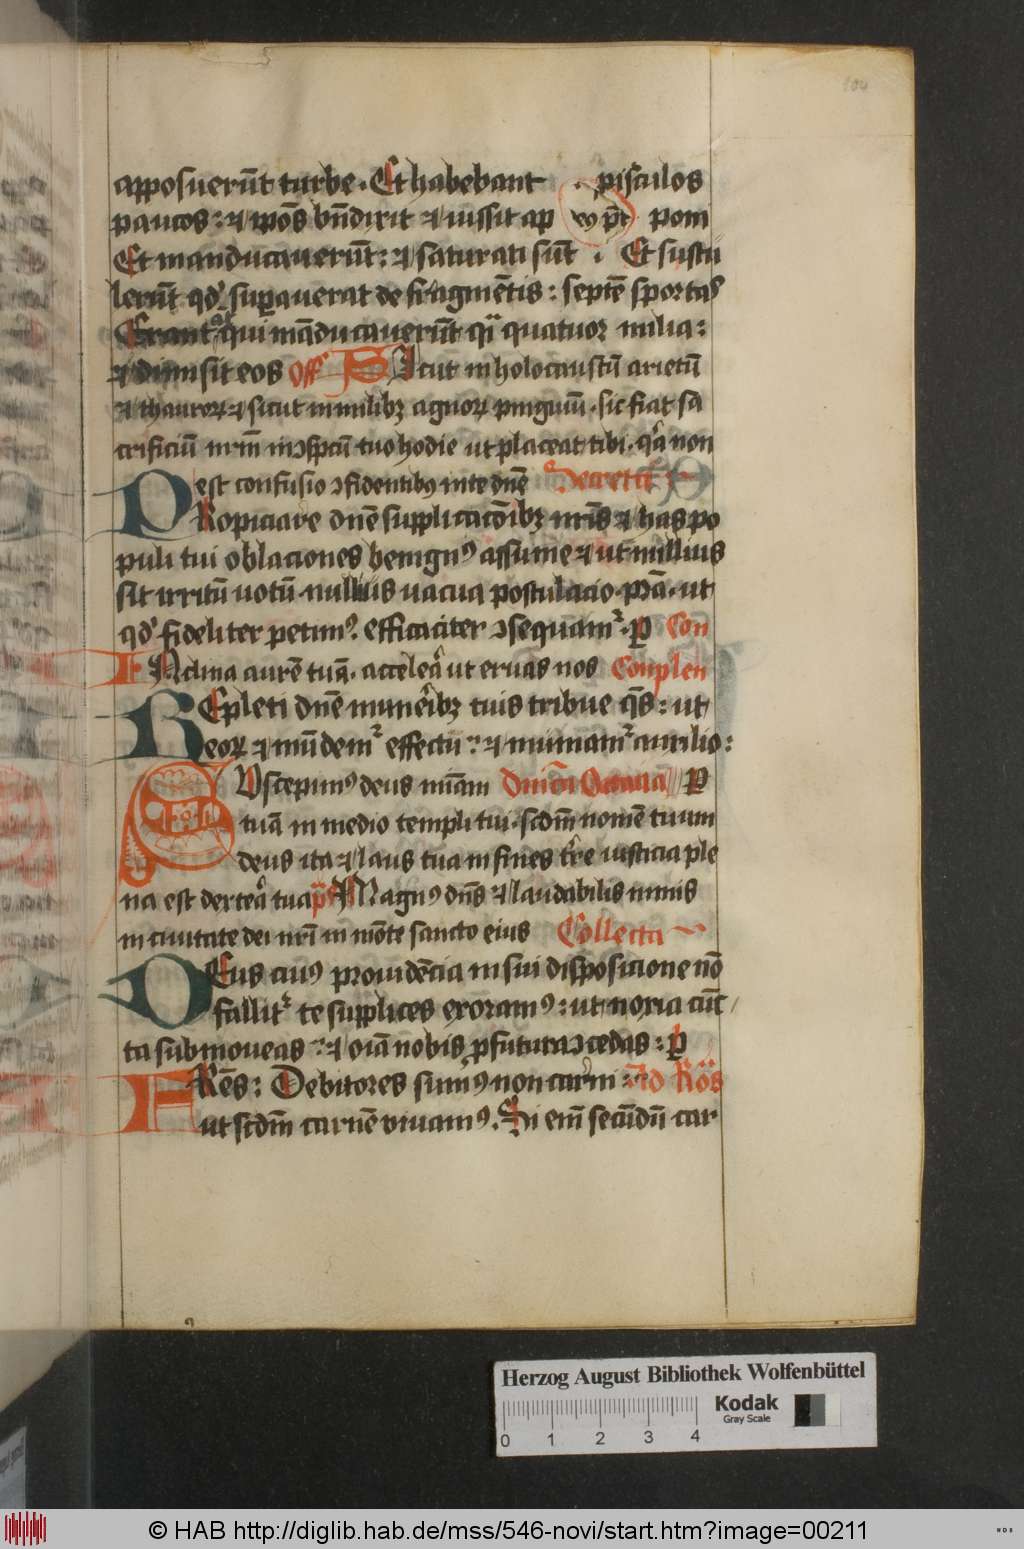 104
apposuerūt turbe . Et habebant . pisculos
paucos : ⁊ ip̄os bn̄dixit ⁊ iussit ap pom
Et manducauerūt : ⁊ saturati sūt . Et sustu
lerūt qd̓ suꝑauerat de fragmētis : septē sportas
Erant āt qui māducauerūt q̈i quatuor milia :
⁊ dimisit eos Off SIcut in holocaustū arietū
⁊ thauroꝝ ⁊ sicut in milibꝫ agnoꝝ pinguiū . sic fiat sa
crificiū nr̄m in ↄspcū tuo hodie ut placeat tibi . qr̄ non
est confusio ↄfidentibꝯ in te dn̄e Secreta
PRopiciare dn̄e supplicacōibꝫ nr̄is ⁊ has po
puli tui oblaciones benignꝯ assume ⁊ ut nullius
sit irritū uotū . nullius uacua postulacio . p̄sta . ut
qd̓ fideliter petimꝯ . efficaciter ↄsequamr̄ . ꝑ Con
INclina aurē tuā . acceler̄a ut eruas nos Conplen
REpleti dn̄e munerībꝫ tuis tribue qs̄ : ut
eoꝝ ⁊ mūdemr̄ effectu : ⁊ muniamr̄ auxilio :
SUscepimꝯ deus mīam Dn̄ica Octaua P
tuā in medio templi tui . scdm̄ nomē tuum
deus ita ⁊ laus tua in fines tr̄re iusticia ple
na est dextera tua p̄s Magnꝯ dn̄s ⁊ laudabilis nimis
in ciuitate dei nr̄i in mōte sancto eius Collecta
DEus cuiꝯ prouidēcia in sui disposicione nō
fallitr̄ te supplices exoramꝯ : ut noxia cūc
ta submoueas : ⁊ oīa nobis ꝓfutura ↄcedas : ꝑ
FRēs : Debitores sumꝯ non carni : Ad Rōs
ut scdm̄ carnē viuamꝯ . Si em̄ secūdū car
Herzog August Bibliothek Wolfenbüttel
Kodak
Gray Scale
0 1 2 3 4
© HAB http://diglib.hab.de/mss/546-novi/start.htm?image=00211